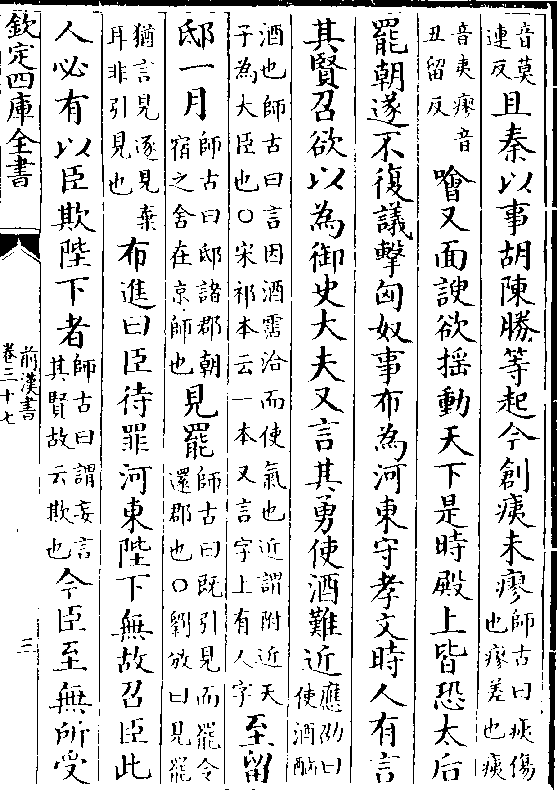 音莫連反且秦以事胡陳勝等起今創痍未瘳師古曰痍傷也瘳差也痍
音夷瘳音丑留反噲又面諛欲揺動天下是時殿上皆恐太后
罷朝遂不復議擊匈奴事布為河東守孝文時人有言
其賢召欲以為御史大夫又言其勇使酒難近應劭曰使酒酗
酒也師古曰言因酒霑洽而使氣也近謂附近天子為大臣也○宋祁本云一本又言字上有人字至留
邸一月師古曰邸諸郡朝宿之舍在京師也見罷師古曰既引見而罷令還郡也○劉攽曰見罷
猶言見逐見棄耳非引見也布進曰臣待罪河東陛下無故召臣此
人必有以臣欺陛下者師古曰謂妄言其賢故云欺也今臣至無所受
欽定四庫全書
前漢書
卷三十七
三